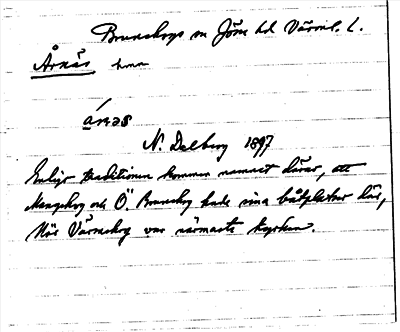 Brunskogs sn Jösse hd Värml. l.
Årnäs hmn
årnäs
N. Dalberg 1897
Enligt traditionen kommer namnet därav, att
Mangskog och Ö. Brunskog hade sina båtplatser här,
När Värmskog var närmaste kyrkan.